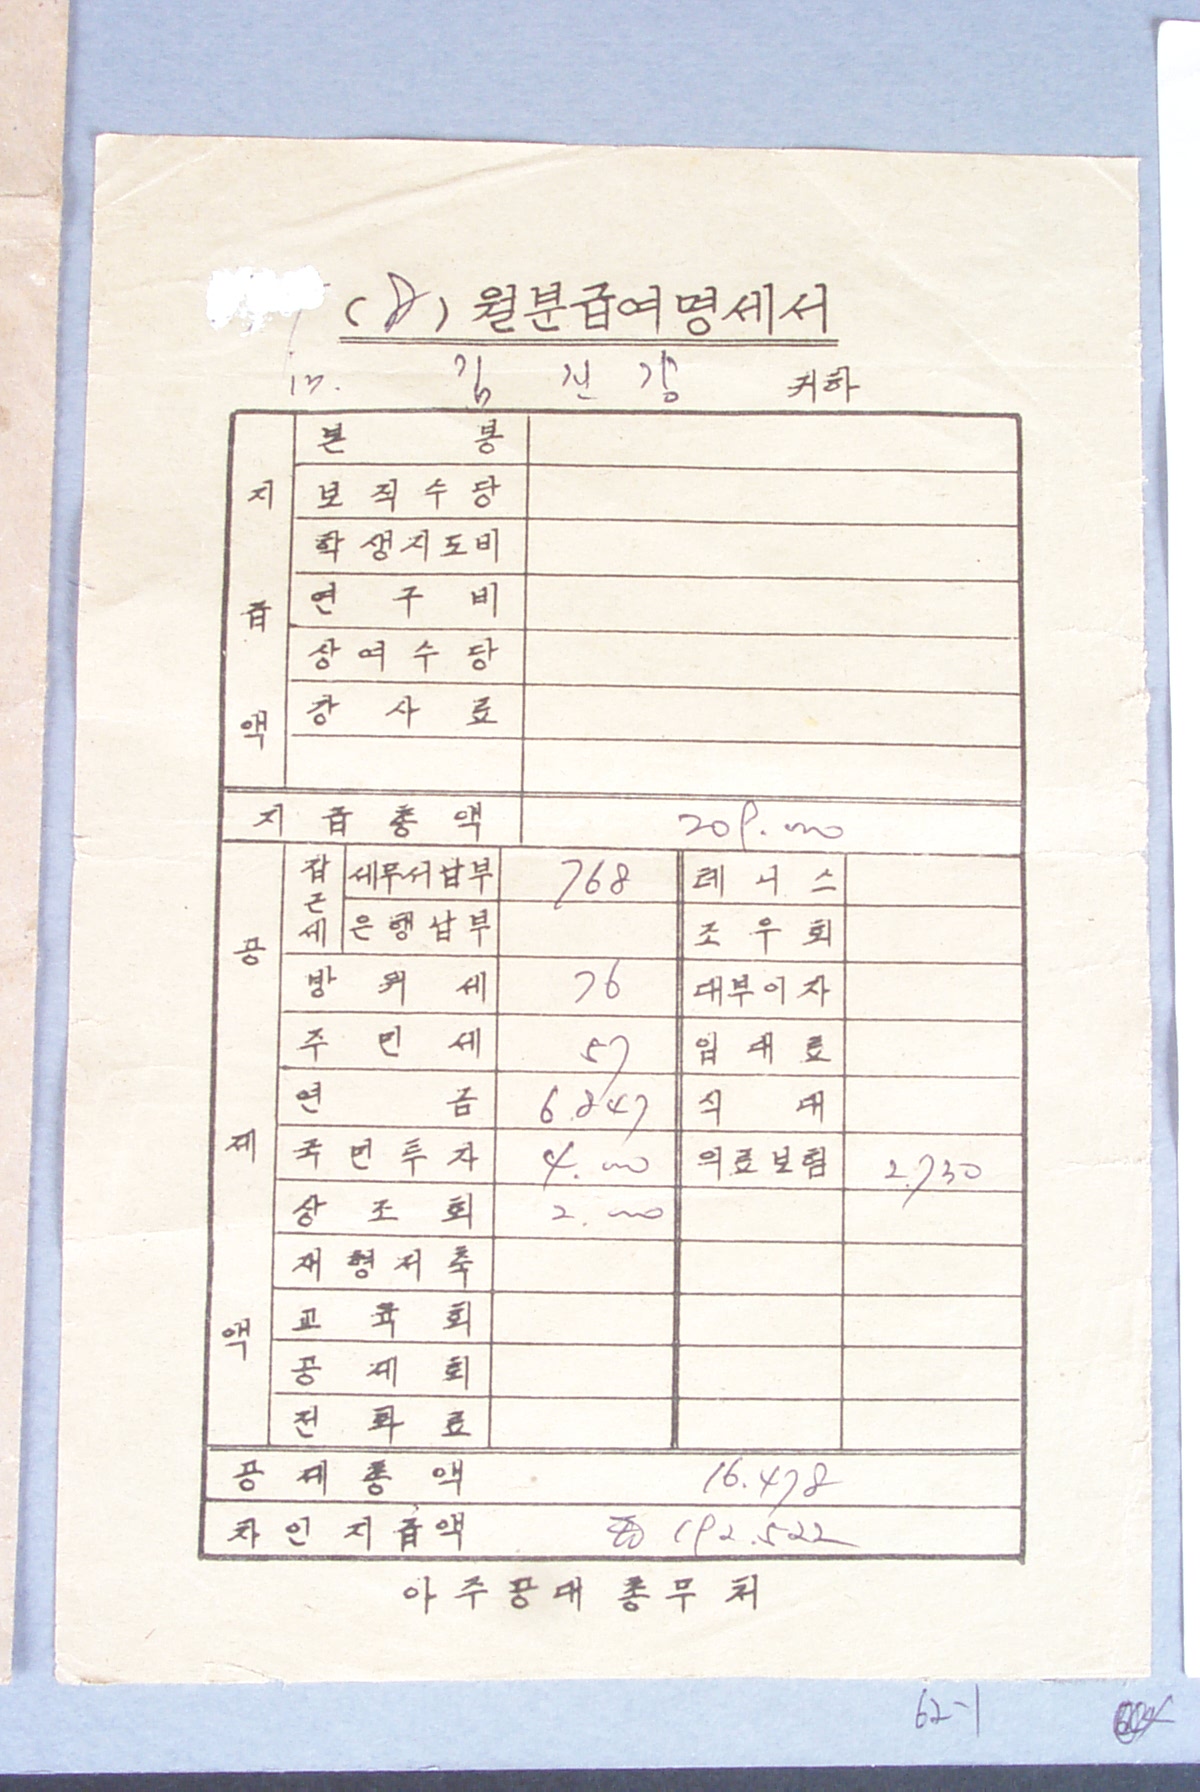 (8) 월분급여명세서
17. 김 건 강 귀하
지급액
본봉
보직수당
학생지도비
연구비
상여수당
강사료
지급총액 209.000
공제액
갑근세 세무서납부 768 테니스
은행납부 조우회
방위세 76 대부이자
주민세 57 임대료
연금 6.847 식대
국민투자 4.000 의료보험 2.730
상조회 2.000
재형저축
교육회
공제회
전화료
공제총액 16.478
차인지급액 192.522
아주공대 총무처
62-1